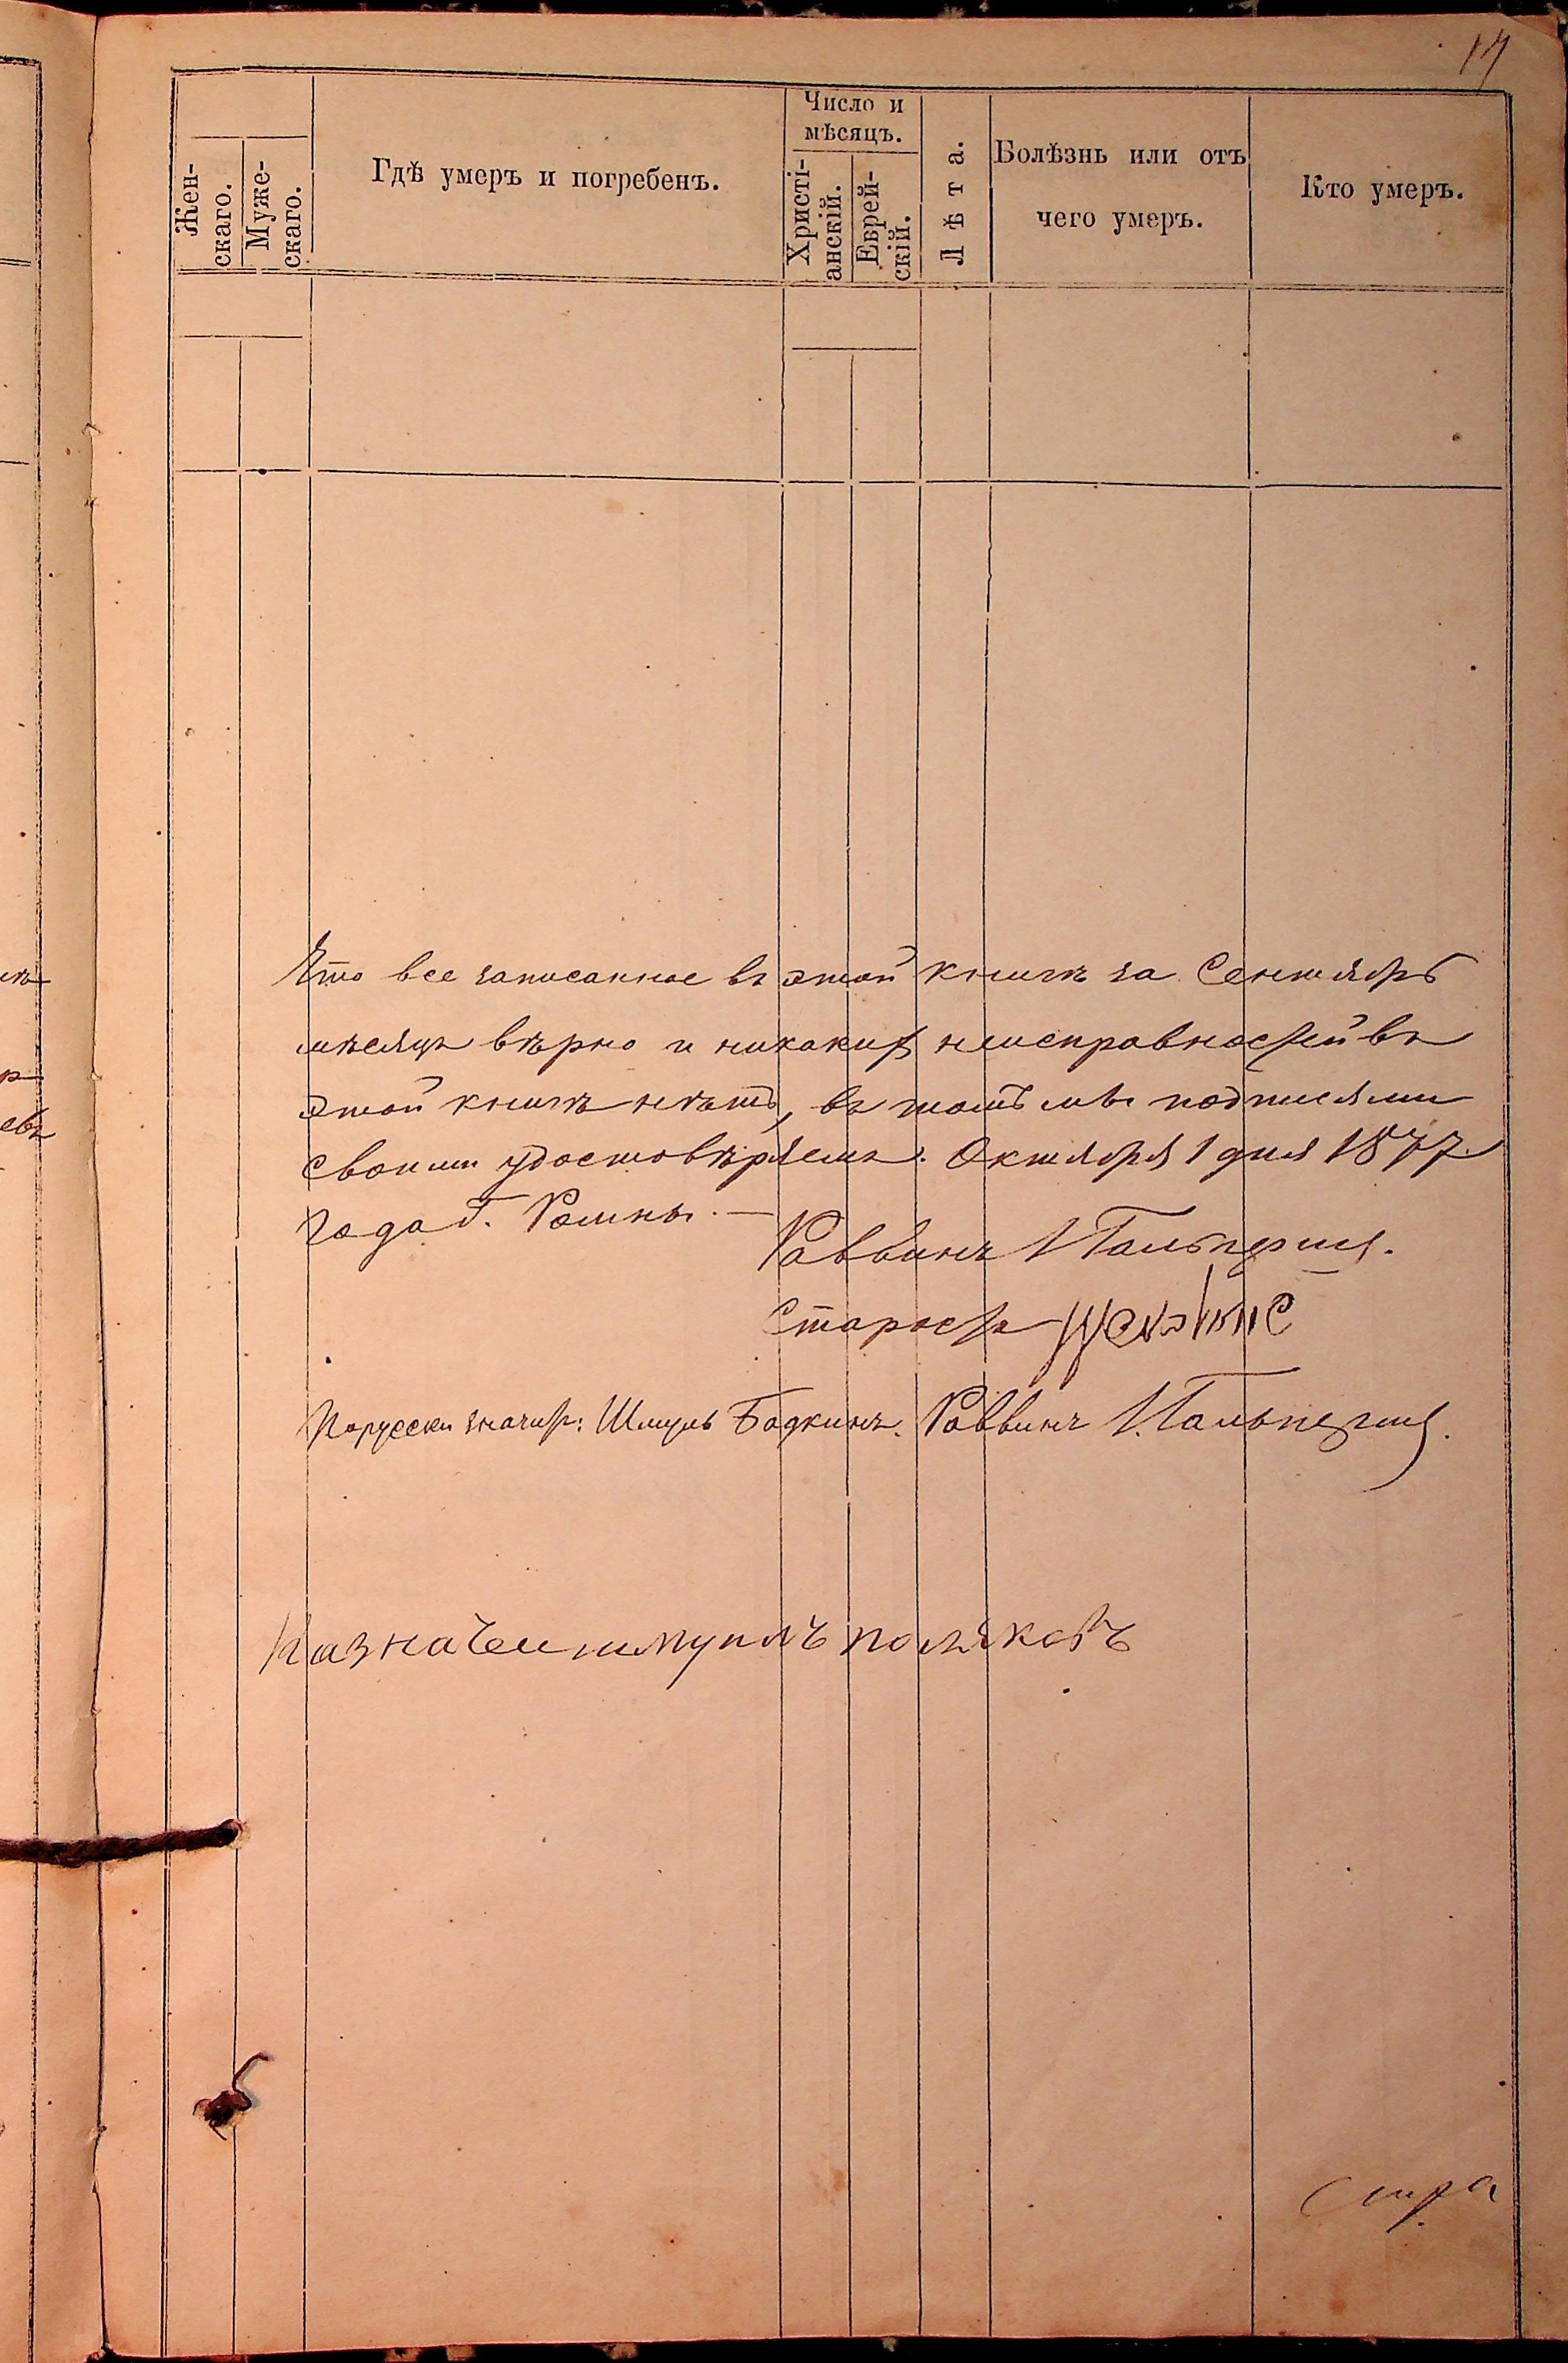 17
Жен-
скаго.
Муже-
скаго.
Гдѣ умеръ и погребенъ.
Число и
мѣсяцъ.
Христі-
анскій.
Еврей-
скій.
Лѣта.
Болѣзнь или отъ
чего умеръ.
Кто умеръ.
Что все записанное въ этой книгѣ за Сентябрь
мѣсяцъ вѣрно и никакихъ неисправностей въ
этой книгѣ нѣтъ, въ томъ мы подписями
своими удостовѣряемъ. Октября 1 дня 1877
года г. Ромны. —
Раввинъ И Гальперин.
Староста
Порусски значитъ: Шмуль Бадкинъ. Раввинъ И. Гальперин.
Казначеи шмуилъ поляковъ